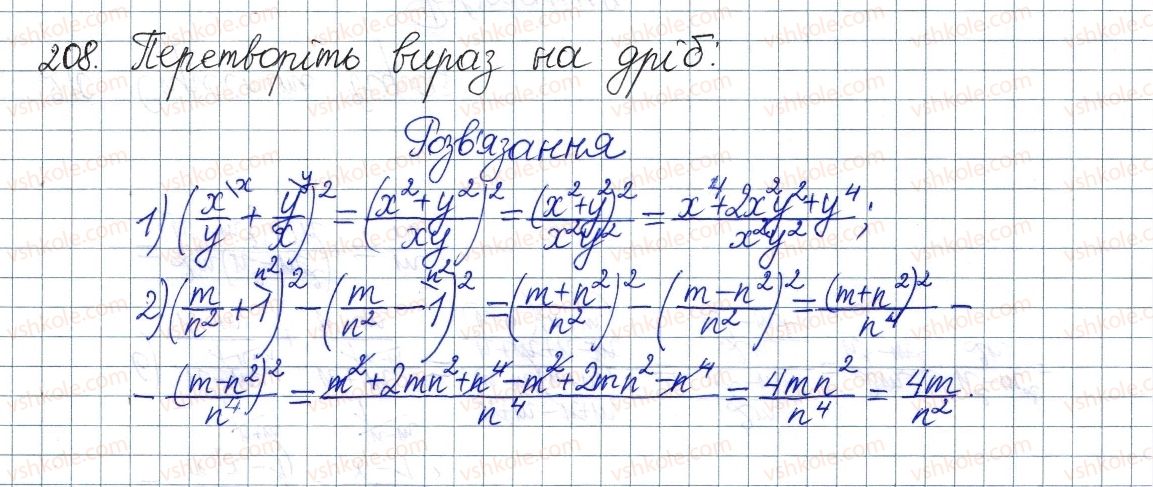 208. Перетворіть вираз на дріб:
Розв'язання
1) (x/y \x + y/x \y)² = ((x²+y²)/xy)² = (x²+y²)²/x²y² = (x⁴+2x²y²+y⁴)/x²y²;
2) (m/n² + 1 \n²)² − (m/n² − 1 \n²)² = ((m+n²)/n²)² − ((m−n²)/n²)² = (m+n²)²/n⁴ −
− (m−n²)²/n⁴ = (m²+2mn²+n⁴−m²+2mn²−n⁴)/n⁴ = 4mn²/n⁴ = 4m/n².